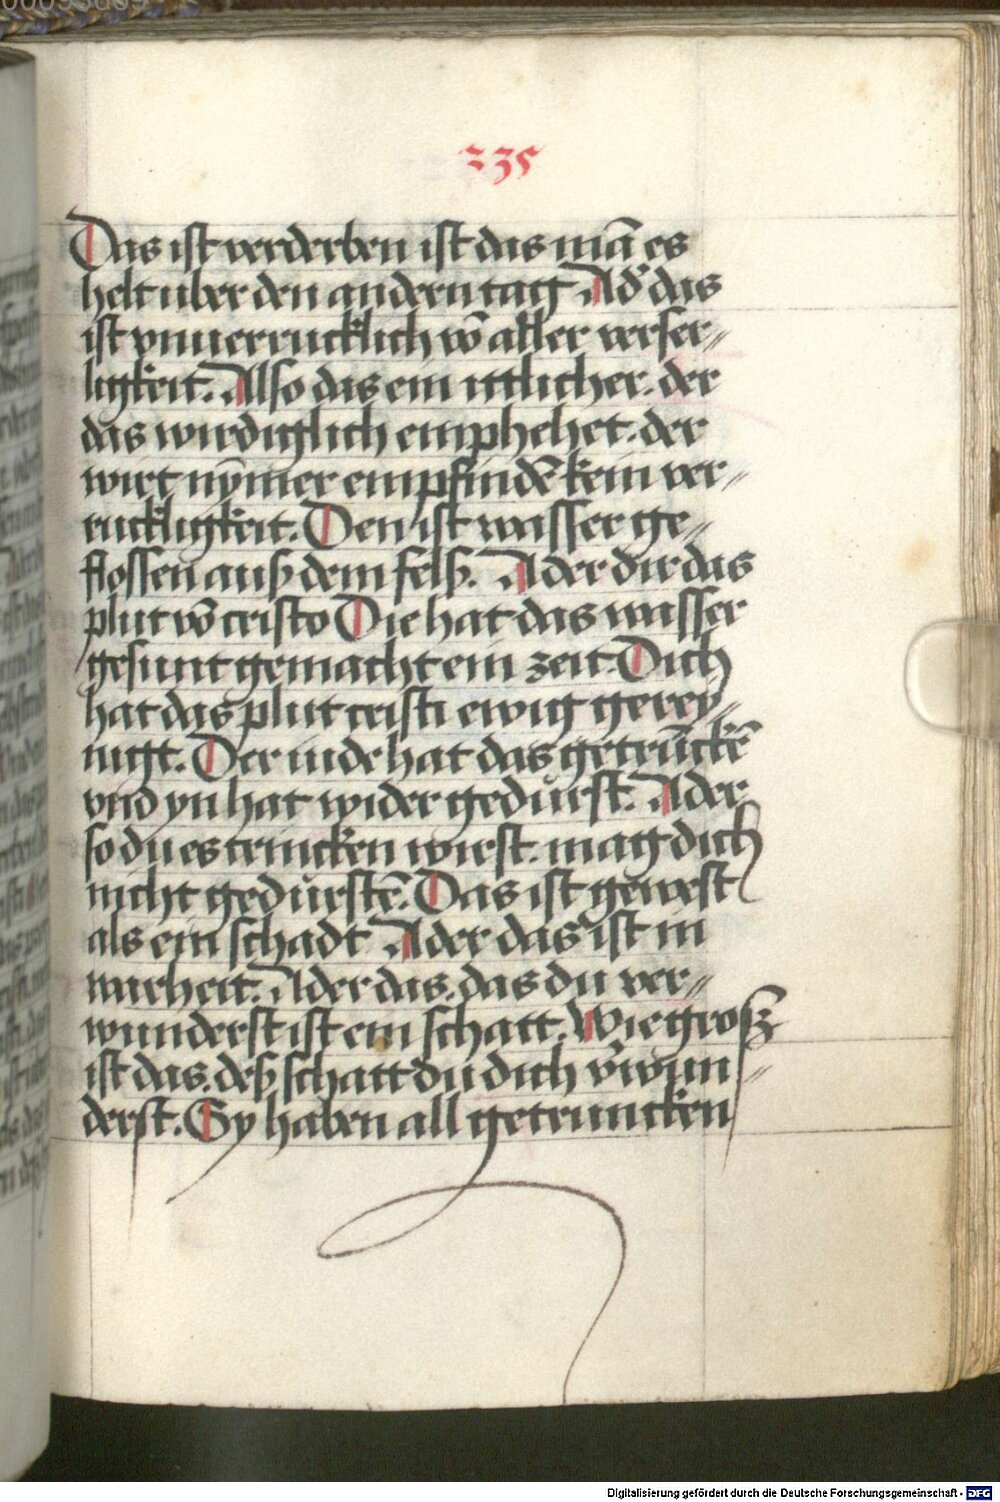 235
Das ist verderben ist das mā es
helt uber den andern tag Ad' das
ist vnuerrucklich vō aller verser⸗
ligkeit. Also das ein ittlicher. der
das wirdiglich emphehet. der
wirt nȳmer empfindē kein ver⸗
ruckligkeit. Den ist wasser ge⸗
flossen auß dem felß. Ader dir das
plut vō cristo Die hat das wasser
gesunt gemacht ein zeit. Dich
hat das plut cristi ewig gerey⸗
nigt. Der iude hat das getrūckē
vnd yn hat wider gedurst. Ader
so du es trincken wirst. mag dich
nicht gedurstē. Das ist gewest
als ein schadt Ader das ist in
warheit. Ader das. das du ver⸗
wunderst ist ein schatt. Wie groß
ist das. deß schatt du dich v'wun⸗
derst. Sy haben all getruncken
Digitalisierung gefördert durch die Deutsche Forschungsgemeinschaft - DFG